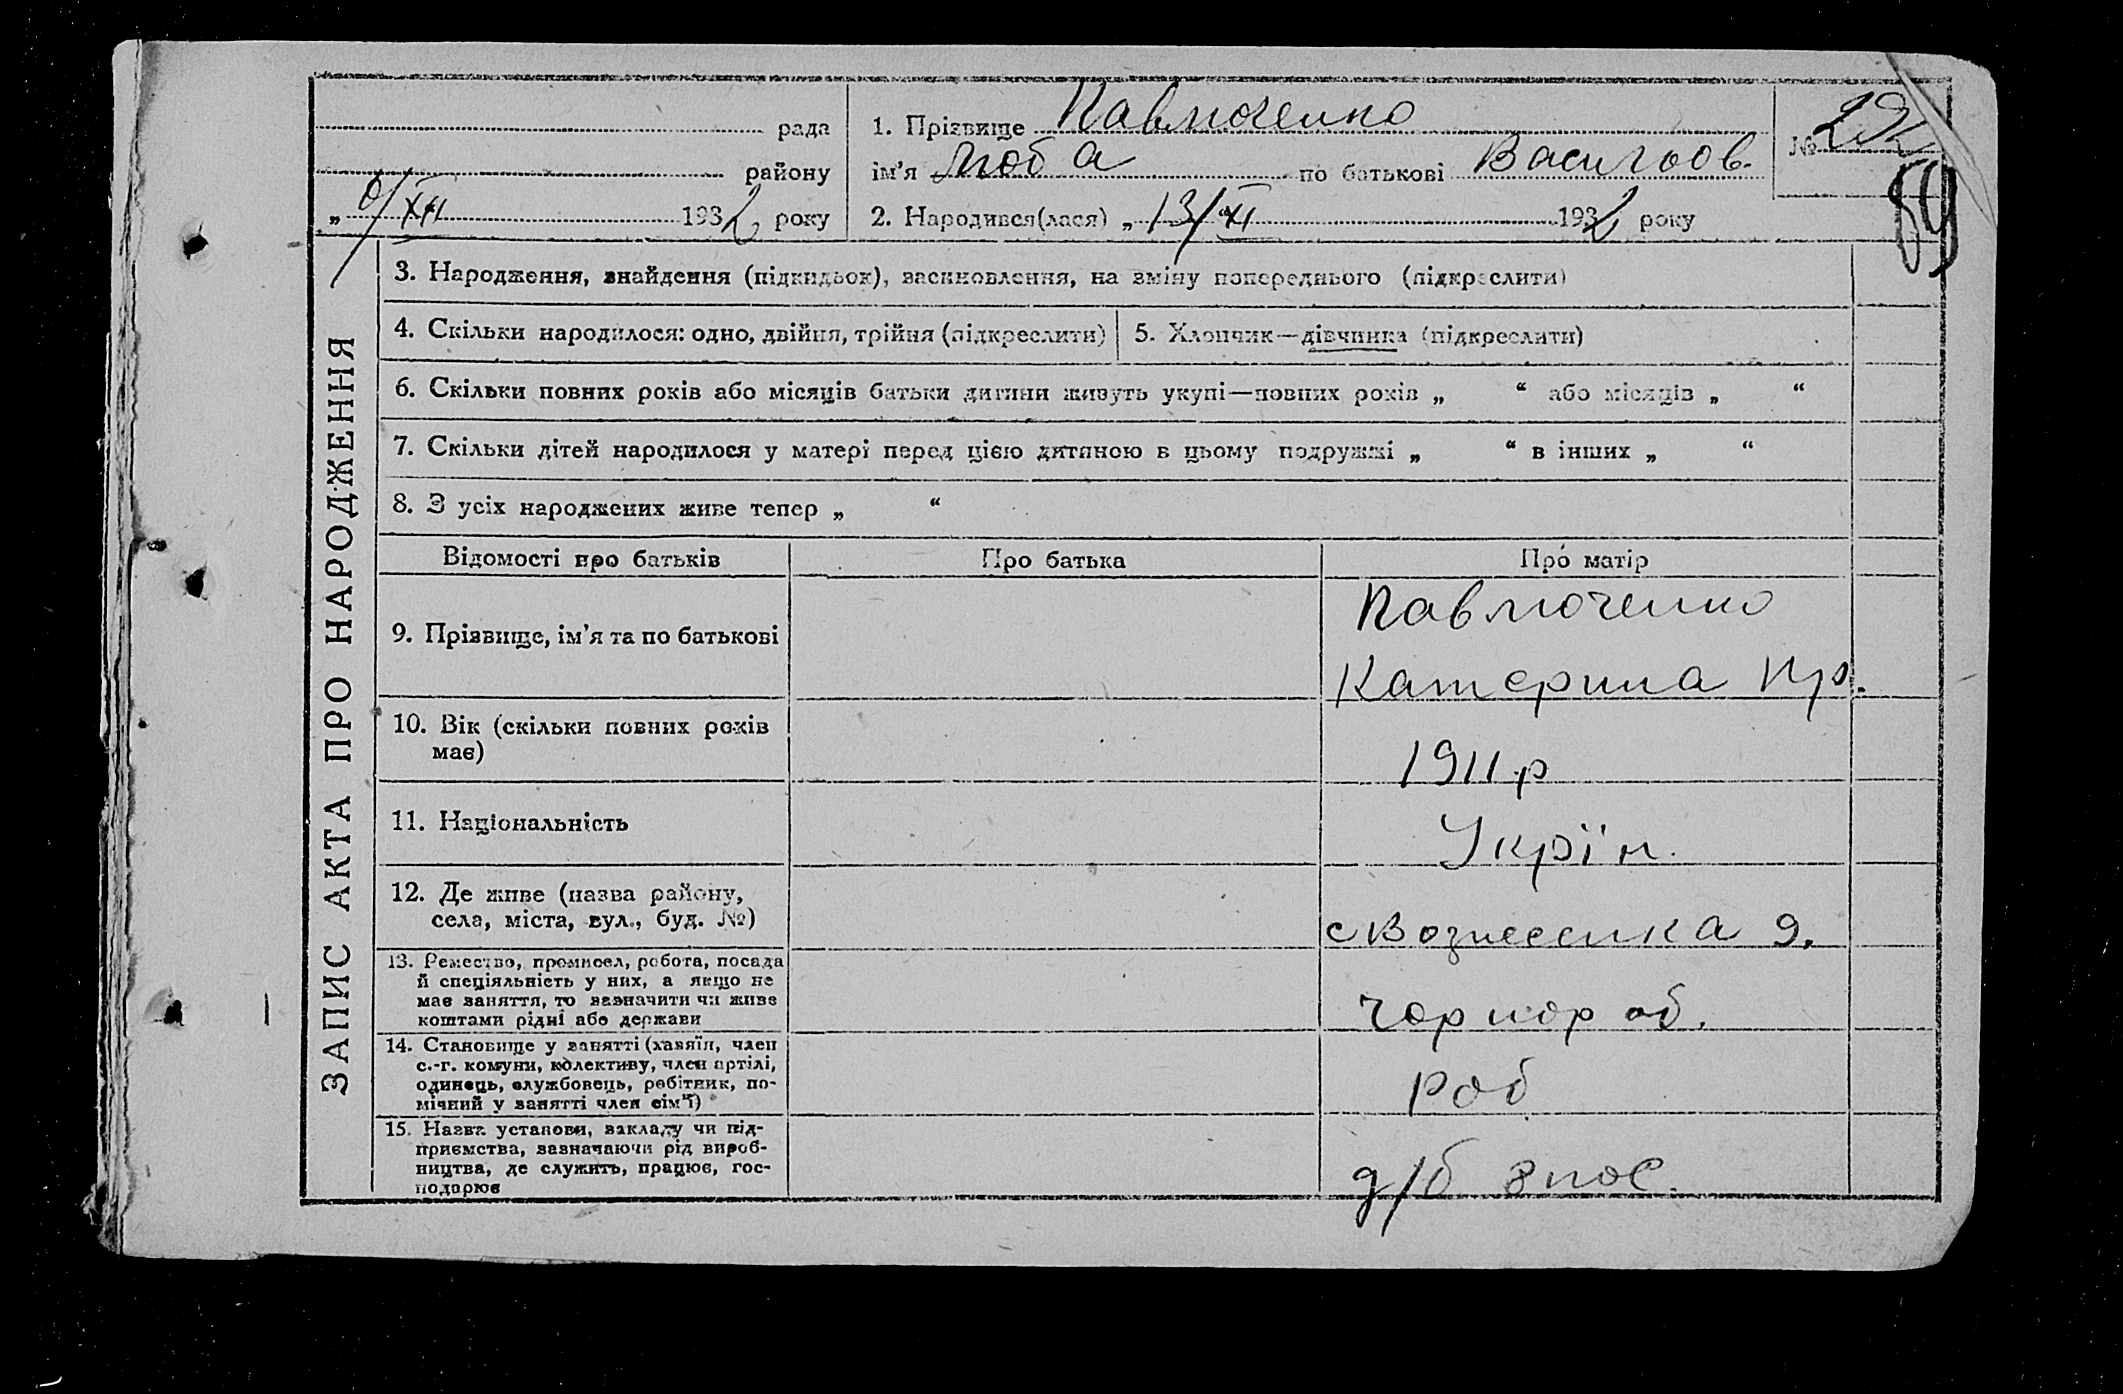 рада
району
"6/XII 1932 року
1. Прізвище Павлюченко
ім'я Люба по батькові Васильов.
2. Народився(лася) „13/XI 1932 року
№
59
ЗАПИС АКТА ПРО НАРОДЖЕННЯ
3. Народження, знайдення (підкидьок), всиновлення, на зміну попереднього (підкреслити)
4. Скільки народилося: одно, двійня, трійня (підкреслити)
5. Хлопчик—дівчинка (підкреслити)
6. Скільки повних років або місяців батьки дитини живуть укупі—повних років „ “ або місяців „ “
7. Скільки дітей народилося у матері перед цією дитиною в цьому подружжі „ “ в інших „ “
8. З усіх народжених живе тепер „ “
Відомості про батьків
Про батька
Про матір
9. Прізвище, ім'я та по батькові
Павлюченко
Катерина Пр.
10. Вік (скільки повних років
має)
1911 р
11. Національність
Укрїн.
12. Де живе (назва району,
села, міста, вул., буд. №)
с Вознесенка 9.
13. Ремество, промисел, робота, посада
й спеціяльність у них, а якщо не
має заняття, то зазначити чи живе
коштами рідні або держави
Чорнороб.
14. Становище у занятті (хазяїн, член
с.-г. комуни, колективу, член артілі,
одинець, службовець, робітник, по-
мічний у занятті член сім'ї)
Роб
15. Назва установи, закладу чи під-
приємства, зазначаючи рід вироб-
ництва, де служить, працює, гос-
подарює
д/б 8 пос.